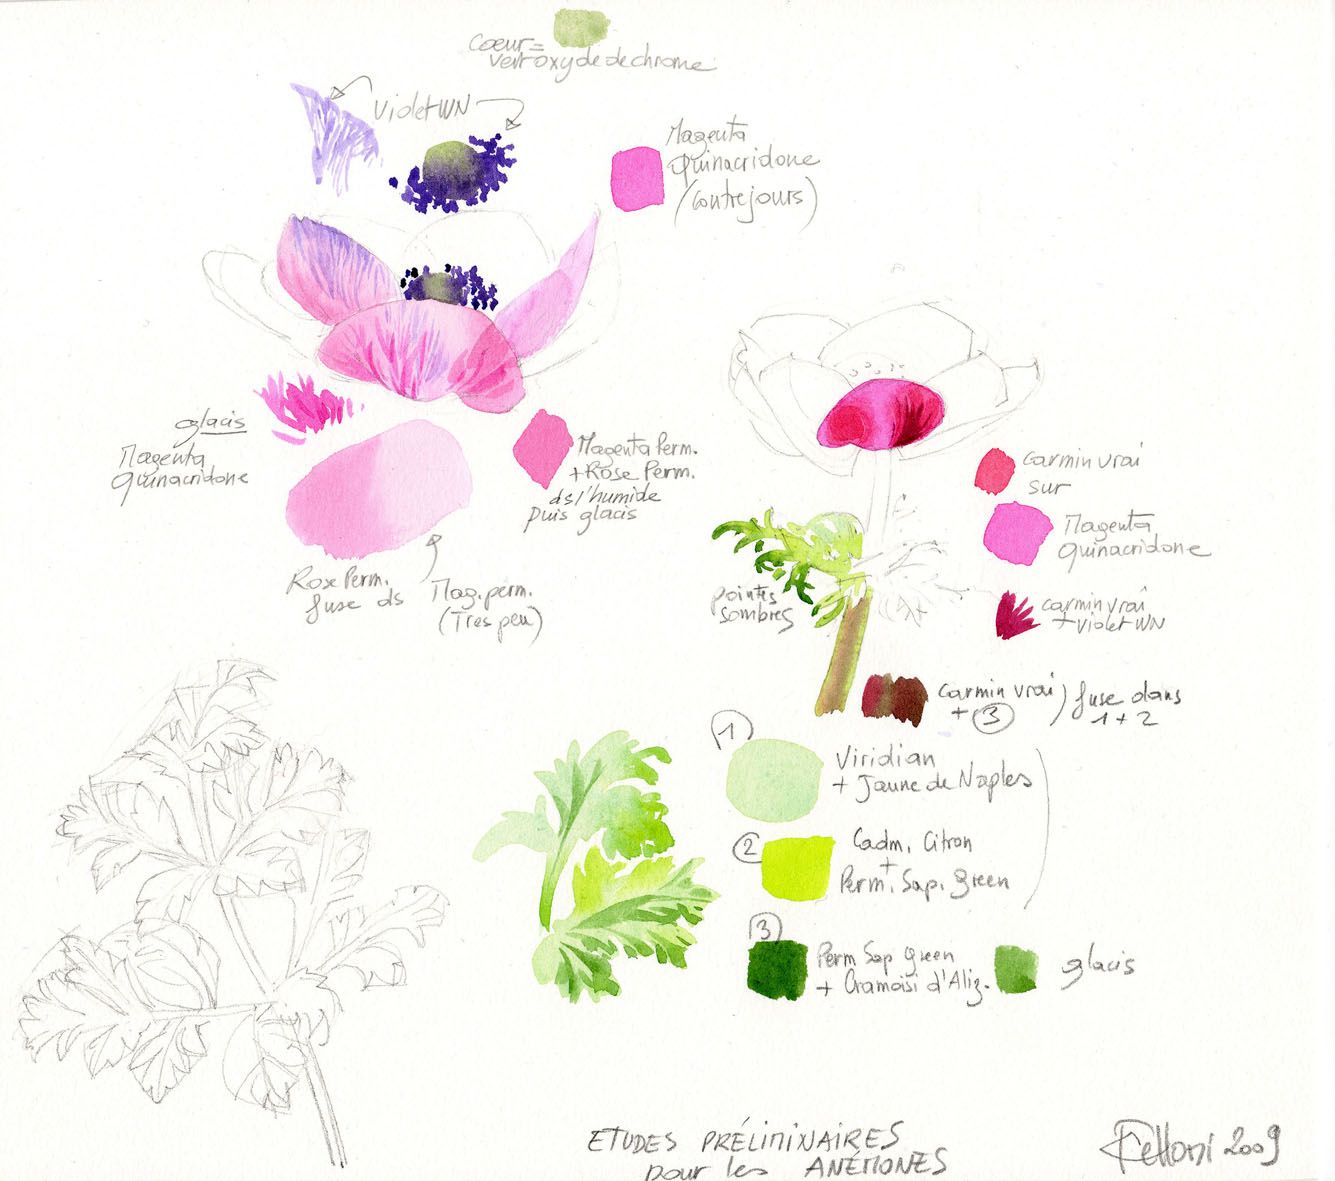 Cœur =
vert oxyde de chrome
Violet WN
Magenta
Quinacridone
(contrejours)
glacis
Magenta
Quinacridone
Magenta Perm.
+ Rose Perm.
ds l'humide
puis glacis
Rose Perm.
fuse ds
Mag. perm.
(Très peu)
Carmin vrai
sur
Magenta
quinacridone
carmin vrai
+ violet WN
pointes
sombres
Carmin vrai
+ 3
) fuse dans
1 + 2
1
Viridian
+ Jaune de Naples
2
Cadm. Citron
+
Perm. Sap. Green
3
Perm Sap Green
+ Cramoisi d'Aliz.
glacis
ETUDES PRÉLIMINAIRES
pour les ANÉMONES
2009